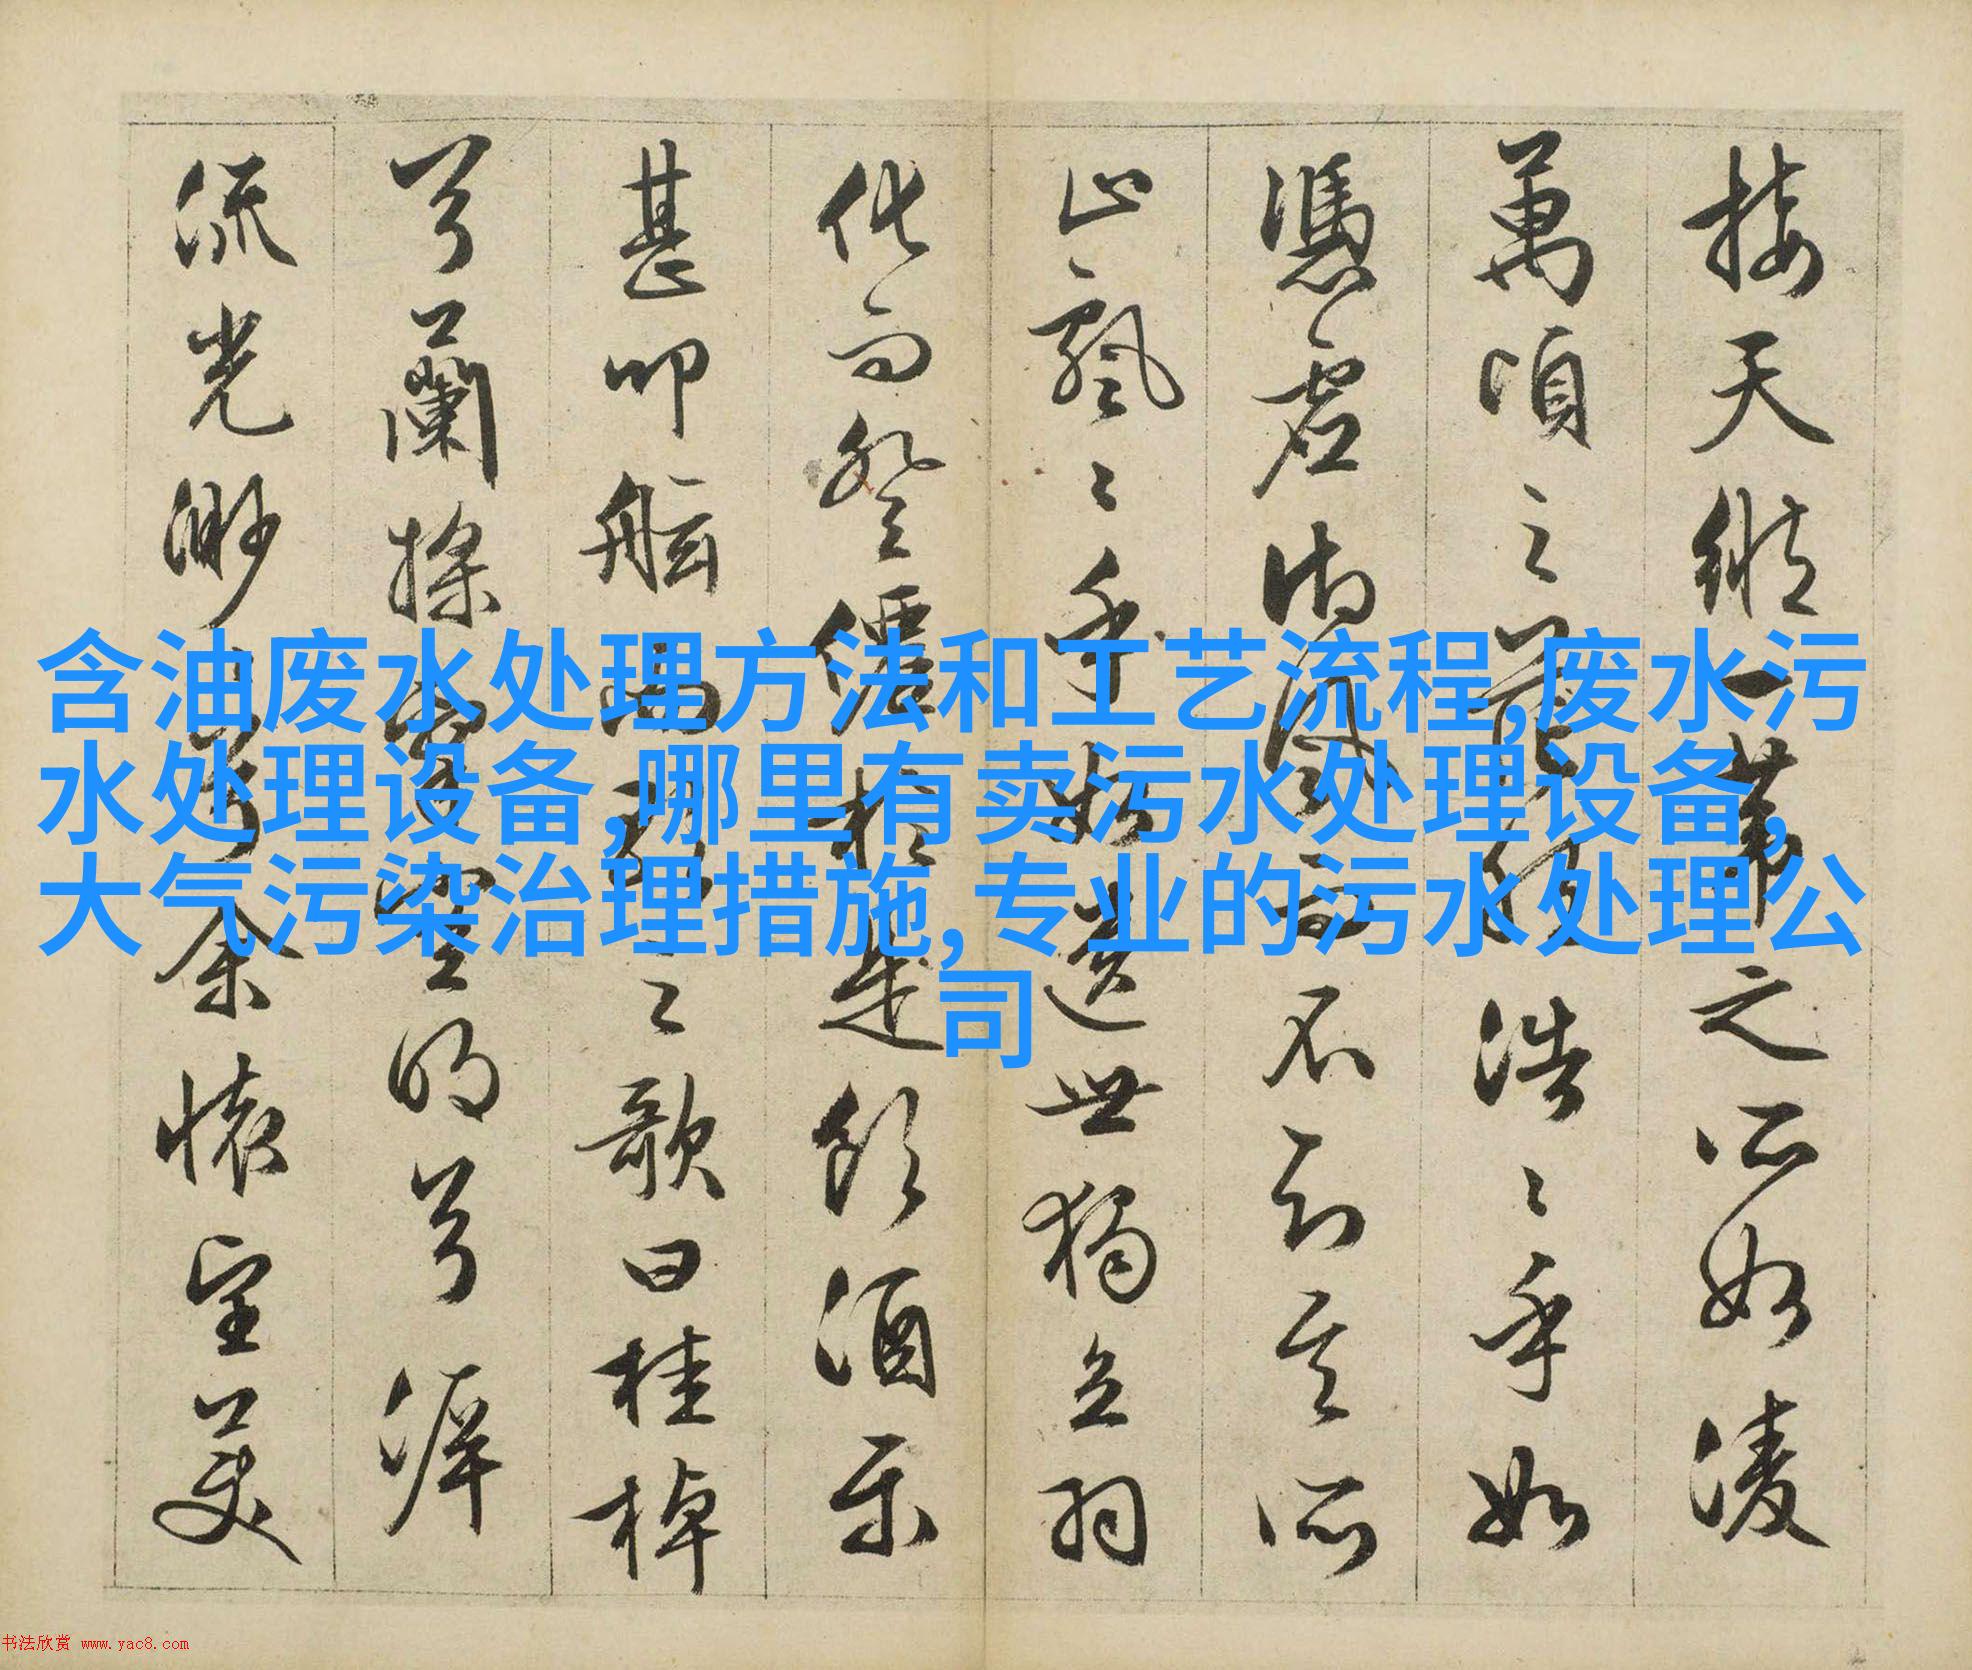 接天縱一葦之所如凌
萬頃之茫然浩〻乎如
憑虛御風而不知其所
止飄〻乎如遺世獨立羽
化而登僊於是飲酒樂
甚叩舷而歌之歌曰桂棹
兮蘭槳擊空明兮泝
流光渺〻兮余懷望美
含油废水处理方法和工艺流程,废水污
水处理设备,哪里有卖污水处理设备,
大气污染治理措施,专业的污水处理公
司
书法欣赏 www.yac8.com